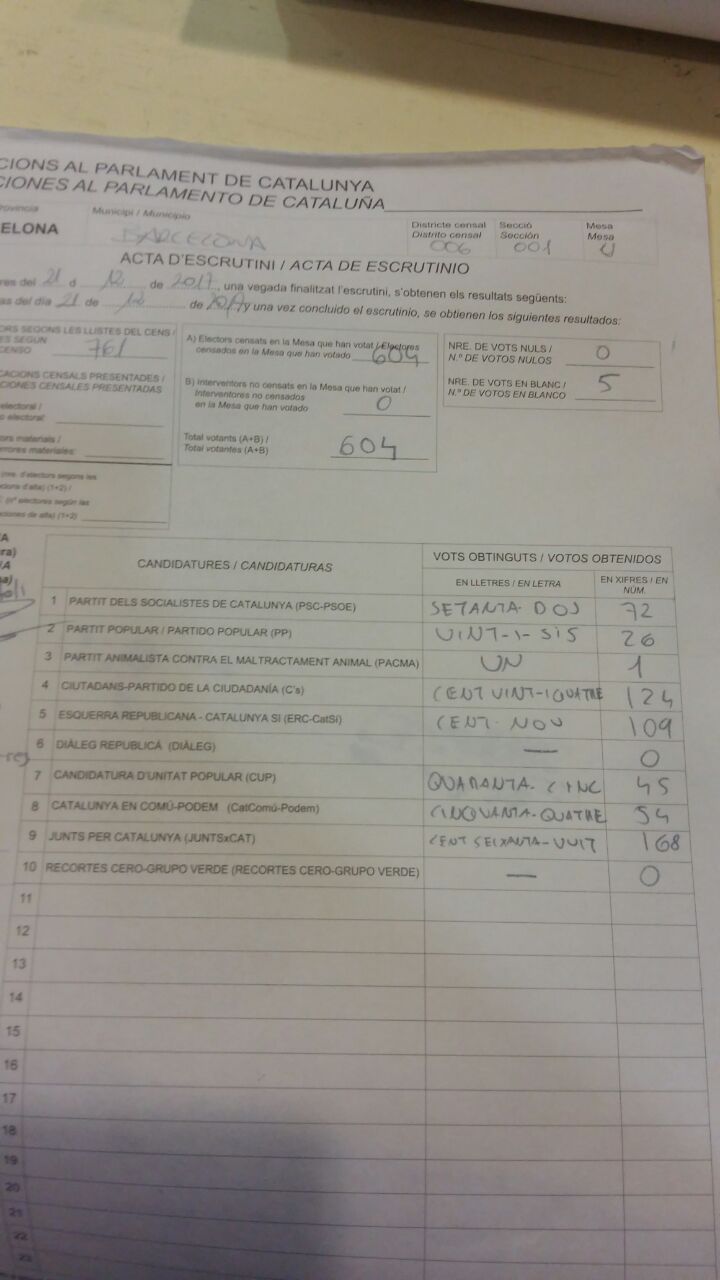 CIONS AL PARLAMENT DE CATALUNYA
CIONES AL PARLAMENTO DE CATALUÑA
rovíncia Municipi / Municipio Districte censal Secció Mesa
Distrito censal Sección Mesa
ELONA BARCELONA 006 001 U
ACTA D'ESCRUTINI / ACTA DE ESCRUTINIO
res del 21 d 12 de 2017, una vegada finalitzat l'escrutini, s'obtenen els resultats següents:
as del día 21 de 12 de 2017 y una vez concluido el escrutinio, se obtienen los siguientes resultados:
ORS SEGONS LES LLISTES DEL CENS /
ES SEGÚN
CENSO 761
CACIONS CENSALS PRESENTADES /
CIONES CENSALES PRESENTADAS
electoral /
o electoral:
ors materials /
errores materiales:
(nre. d'electors segons les
cions d'alta) (1+2) /
(nº electores según las
ciones de alta) (1+2)
A) Electors censats en la Mesa que han votat / Electores
censados en la Mesa que han votado 604
B) Interventors no censats en la Mesa que han votat /
Interventores no censados
en la Mesa que han votado 0
Total votants (A+B) /
Total votantes (A+B) 604
NRE. DE VOTS NULS /
N.º DE VOTOS NULOS 0
NRE. DE VOTS EN BLANC /
N.º DE VOTOS EN BLANCO 5
CANDIDATURES / CANDIDATURAS VOTS OBTINGUTS / VOTOS OBTENIDOS
EN LLETRES / EN LETRA EN XIFRES / EN NÚM.
1 PARTIT DELS SOCIALISTES DE CATALUNYA (PSC-PSOE) SETANTA-DOS 72
2 PARTIT POPULAR / PARTIDO POPULAR (PP) VINT-I-SIS 26
3 PARTIT ANIMALISTA CONTRA EL MALTRACTAMENT ANIMAL (PACMA) UN 1
4 CIUTADANS-PARTIDO DE LA CIUDADANÍA (C's) CENT VINT-I QUATRE 124
5 ESQUERRA REPUBLICANA - CATALUNYA SÍ (ERC-CatSí) CENT-NOU 109
6 DIÀLEG REPUBLICÀ (DIÀLEG) — 0
7 CANDIDATURA D'UNITAT POPULAR (CUP) QUARANTA-CINC 45
8 CATALUNYA EN COMÚ-PODEM (CatComú-Podem) CINQUANTA-QUATRE 54
9 JUNTS PER CATALUNYA (JUNTSxCAT) CENT SEIXANTA-VUIT 168
10 RECORTES CERO-GRUPO VERDE (RECORTES CERO-GRUPO VERDE) — 0
11
12
13
14
15
16
17
18
19
20
21
22
23